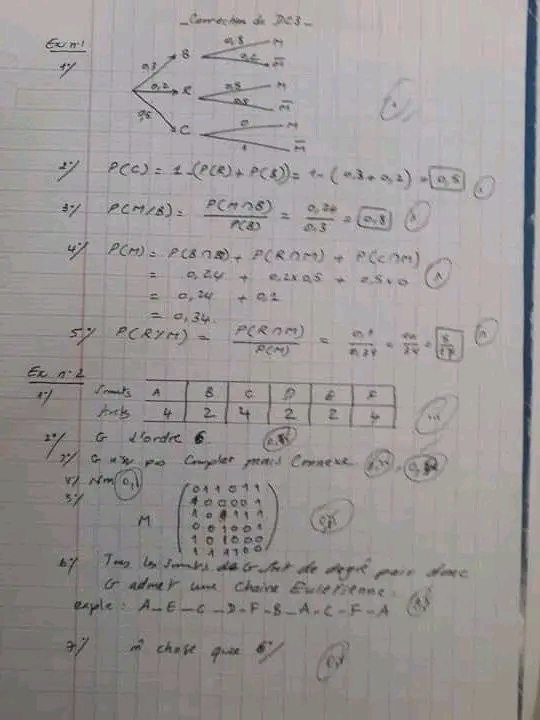 Correction de DC3
Ex n°1
1°/
0,3 B 0,8 M
0,2 M̅
0,2 R 0,5 M
0,5 M̅
0,5 C 0 M
1 M̅
2°/ P(C) = 1 - (P(R) + P(B)) = 1 - (0,3 + 0,2) = 0,5
3°/ P(M/B) = P(M∩B)/P(B) = 0,24/0,3 = 0,8
4°/ P(M) = P(B∩M) + P(R∩M) + P(C∩M)
= 0,24 + 0,2x0,5 + 0,5x0
= 0,24 + 0,1
= 0,34
5°/ P(R/M) = P(R∩M)/P(M) = 0,1/0,34 = 10/34 = 5/17
Ex n°2
1°/ Smts A B C D E F
4 2 4 2 2 4
2°/ G d'ordre 6
3°/ G n'est pas Complet mais Connexe
4°/ Non
5°/
M
0 1 1 0 1 1
1 0 0 0 0 1
1 0 0 1 1 1
0 0 1 0 0 1
1 0 1 0 0 0
1 1 1 1 0 0
6°/ Tous les Smts de G sont de degré pair donc
G admet une chaine Eulérienne.
exple : A - E - C - D - F - B - A - C - F - A
7°/ m̂ chose que 6°/